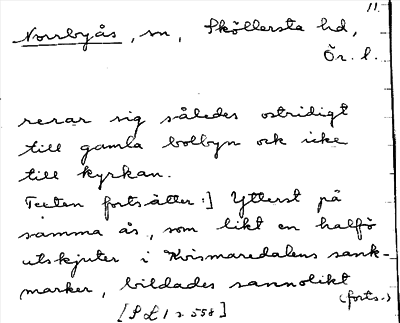 11.
Norrbyås, sn, Sköllersta hd,
Ör. l.
rerar sig således ostridigt
till gamla bolbyn och icke
till kyrkan.
Texten fortsätter:] Ytterst på
samma ås, som likt en halfö
utskjuter i Kvismaredalens sank-
marker, bildades sannolikt
(forts.)
[SL 1 s. 558]